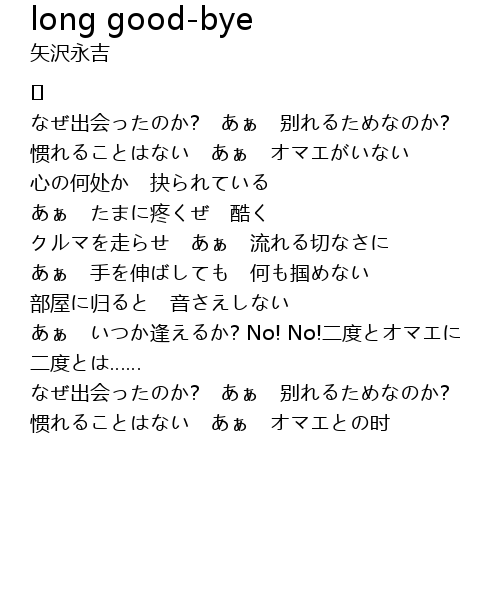 long good-bye
矢沢永吉
なぜ出会ったのか?　あぁ　别れるためなのか?
惯れることはない　あぁ　オマエがいない
心の何処か　抉られている
あぁ　たまに疼くぜ　酷く
クルマを走らせ　あぁ　流れる切なさに
あぁ　手を伸ばしても　何も掴めない
部屋に归ると　音さえしない
あぁ　いつか逢えるか? No! No!二度とオマエに
二度とは……
なぜ出会ったのか?　あぁ　别れるためなのか?
惯れることはない　あぁ　オマエとの时